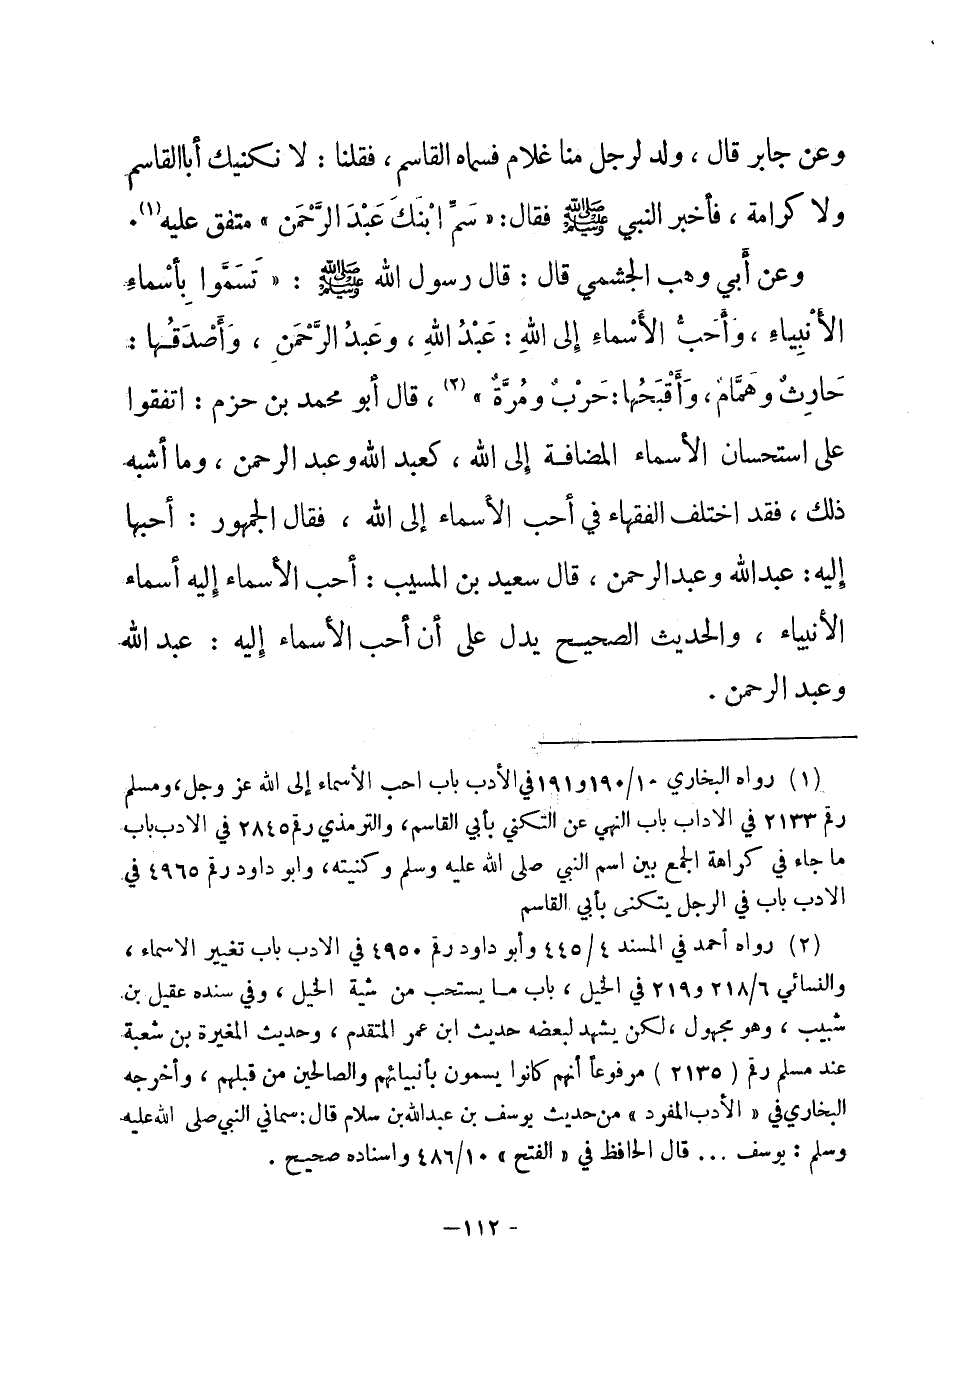 وعن جابر قال ، ولد لرجل منا غلام فسماه القاسم ، فقلنا : لا نكنيك أباالقاسم
ولا كرامة ، فأخبر النبي ﷺ فقال: « سَمِّ ابْنَكَ عَبْدَ الرَّحْمَن » متفق عليه(١).
وعن أَبي وهب الجشمي قال : قال رسول الله ﷺ : « تَسَمَّوا بِأَسْماءِ
الأَنْبِياءِ ، وَأَحَبُّ الأَسْماءِ إلى اللهِ : عَبْدُ اللهِ ، وَعَبدُ الرَّحْمَنِ ، وَأَصْدَقُها :
حَارِثٌ وهَمَّامٌ ، وَأَقْبَحُها: حَرْبٌ ومُرَّةٌ » (٢) ، قال أبو محمد بن حزم : اتفقوا
على استحسان الأسماء المضافة إلى الله ، كعبد الله وعبد الرحمن ، وما أشبه
ذلك ، فقد اختلف الفقهاء في أحب الأسماء إلى الله ، فقال الجمهور : أحبها
إليه: عبدالله وعبدالرحمن ، قال سعيد بن المسيب : أحب الأسماء إليه أسماء
الأنبياء ، والحديث الصحيح يدل على أن أحب الأسماء إليه : عبد الله
وعبد الرحمن .
(١) رواه البخاري ١٠/ ١٩٠و١٩١ في الأدب باب احب الأسماء إلى الله عز وجل،ومسلم
رقم ٢١٣٣ في الاداب باب النهي عن التكني بأبي القاسم، والترمذي رقم ٢٨٤٥ في الادب باب
ما جاء في كراهة الجمع بين اسم النبي صلى الله عليه وسلم وكنيته، وابو داود رقم ٤٩٦٥ في
الادب باب في الرجل يتكنى بأبي القاسم
(٢) رواه أحمد في المسند ٤/ ٤٤٥ وأبو داود رقم ٤٩٥٠ في الادب باب تغيير الاسماء ،
والنسائي ٦/ ٢١٨ و٢١٩ في الخيل ، باب ما يستحب من شية الخيل ، وفي سنده عقيل بن
شبيب ، وهو مجهول ،لكن يشهد لبعضه حديث ابن عمر المتقدم ، وحديث المغيرة بن شعبة
عند مسلم رقم ( ٢١٣٥ ) مرفوعاً أنهم كانوا يسمون بأنبيائهم والصالحين من قبلهم ، وأخرجه
البخاري في « الأدب المفرد » من حديث يوسف بن عبدالله بن سلام قال: سماني النبي صلى الله عليه
وسلم : يوسف ... قال الحافظ في « الفتح » ١٠/ ٤٨٦ واسناده صحيح .
- ١١٢ —